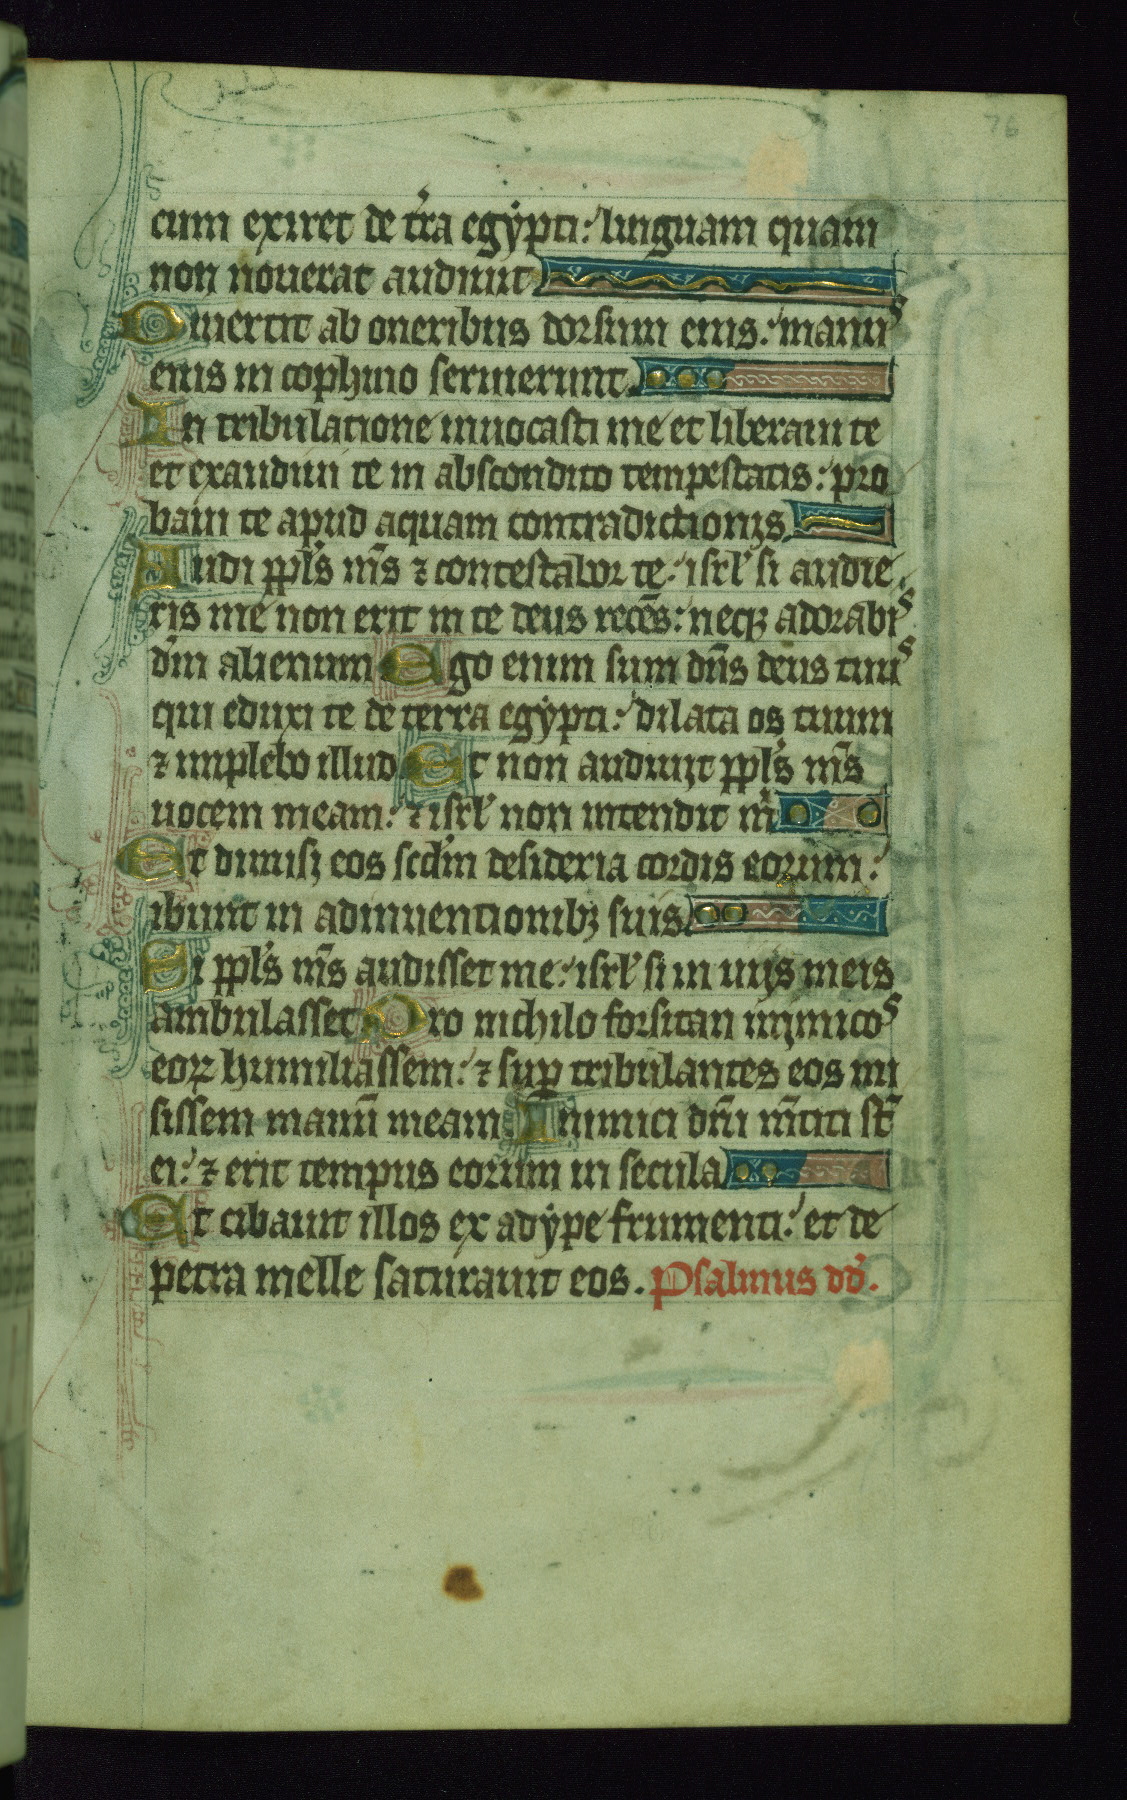 76
cum exiret de tr̄a egẏpti: linguam quam
non nouerat audiuit
Diuertit ab oneribus dorsum eius: manus
eius in cophino seruierunt.
In tribulatione inuocasti me et liberaui te
et exaudiui te in abscondito tempestatis: pro
baui te apud aquam contradictionis.
Audi ppl̄s m̄s ⁊ contestabor te: isrl̄ si audie
ris me non erit in te deus recēs: neqꝫ adorabis
dm̄ alienum Ego enim sum dn̄s deus tuus
qui eduxi te de terra egẏpti: dilata os tuum
⁊ implebo illud Et non audiuit ppl̄s m̄s
uocem meam: ⁊ isrl̄ non intendit m̄
Et dimisi eos scdm̄ desideria cordis eorum:
ibunt in adinuentionibꝫ suis
Si ppl̄s m̄s audisset me: isrl̄ si in uijs meis
ambulasset Pro nichilo forsitan inimicos
eoꝝ humiliassem: ⁊ suꝑ tribulantes eos mi
sissem manū meam Inimici dn̄i m̄titi st̄
ei: ⁊ erit tempus eorum in secula
Et cibauit illos ex adẏpe frumenti: et de
petra melle saturauit eos. Psalmus dd̄.